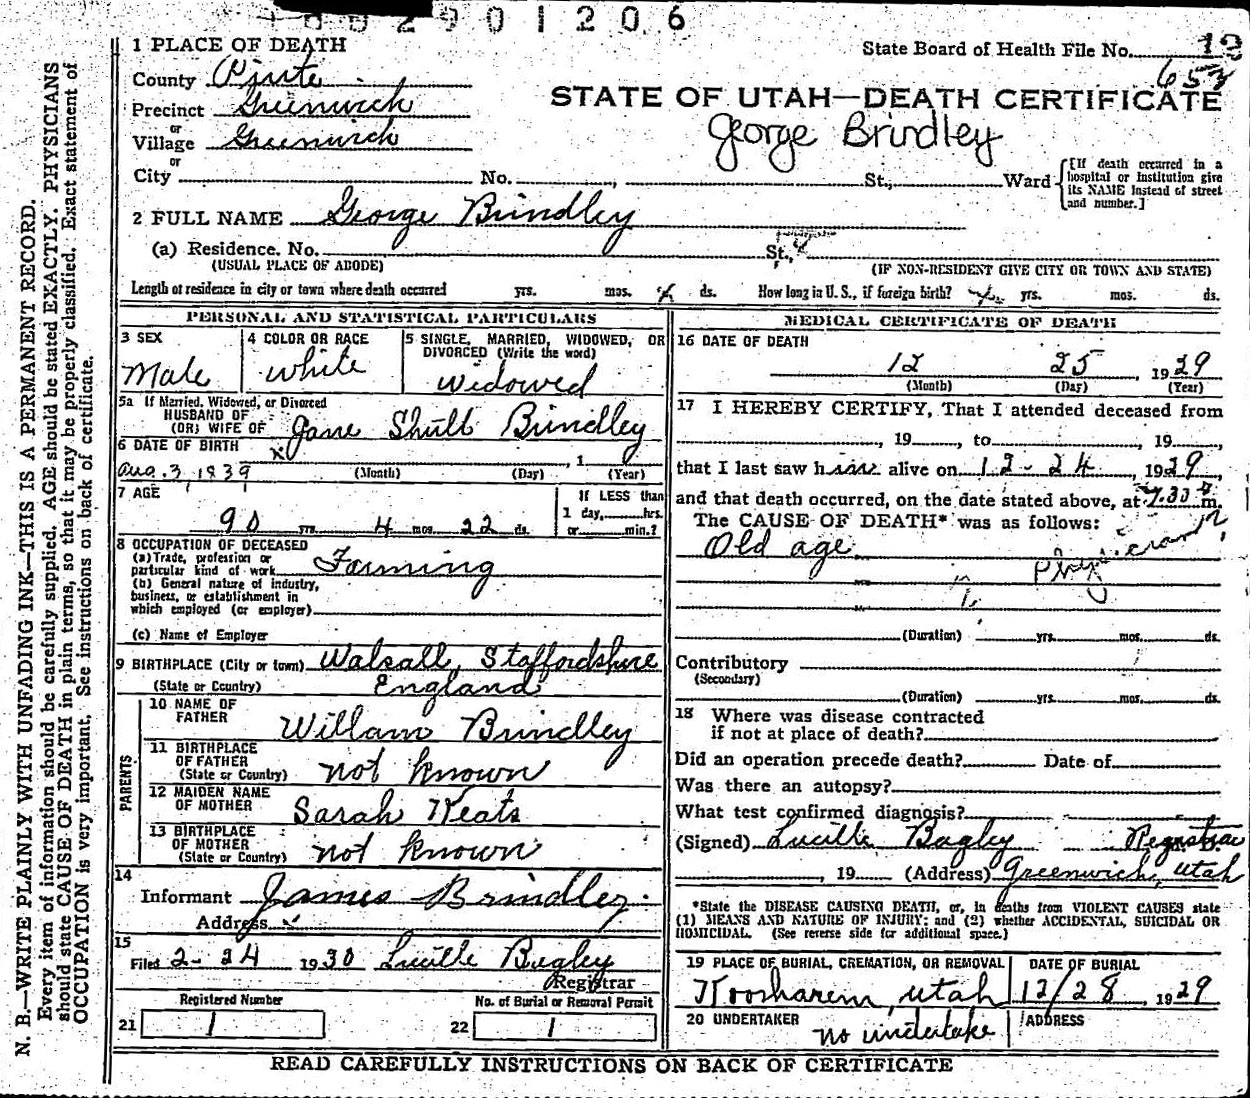 2901206
1 PLACE OF DEATH
State Board of Health File No. 12
County Piute
653
Precinct Greenwich
STATE OF UTAH—DEATH CERTIFICATE
or
Village Greenwich
George Brindley
or
City No. , St., Ward
[If death occurred in a hospital or institution give its NAME instead of street and number.]
2 FULL NAME George Brindley
(a) Residence. No. St.,
(USUAL PLACE OF ABODE) (IF NON-RESIDENT GIVE CITY OR TOWN AND STATE)
Length of residence in city or town where death occurred yrs. mos. ds. How long in U. S., if foreign birth? yrs. mos. ds.
PERSONAL AND STATISTICAL PARTICULARS
3 SEX
Male
4 COLOR OR RACE
white
5 SINGLE, MARRIED, WIDOWED, OR
DIVORCED (Write the word)
widowed
5a If Married, Widowed, or Divorced
HUSBAND OF
(OR) WIFE OF Jane Shult Brindley
6 DATE OF BIRTH
Aug. 3, 1839 (Month) (Day) , 1 (Year)
7 AGE
90 yrs. 4 mos. 22 ds.
If LESS than
1 day, hrs.
or min.?
8 OCCUPATION OF DECEASED
(a) Trade, profession or
particular kind of work Farming
(b) General nature of industry,
business, or establishment in
which employed (or employer)
(c) Name of Employer
9 BIRTHPLACE (City or town) Walsall, Staffordshire
(State or Country) England
PARENTS
10 NAME OF
FATHER Willam Brindley
11 BIRTHPLACE
OF FATHER
(State or Country) not known
12 MAIDEN NAME
OF MOTHER Sarah Keats
13 BIRTHPLACE
OF MOTHER
(State or Country) not known
14
Informant James Brindley
Address
15
Filed 2-24 1930 Lucille Bagley
Registrar
Registered Number
21 1
No. of Burial or Removal Permit
22 1
MEDICAL CERTIFICATE OF DEATH
16 DATE OF DEATH
12 25, 1929
(Month) (Day) (Year)
17 I HEREBY CERTIFY, That I attended deceased from
, 19 , to , 19 ,
that I last saw him alive on 12-24, 1929,
and that death occurred, on the date stated above, at 7.30 m.
The CAUSE OF DEATH* was as follows:
Old age
Physician?
(Duration) yrs. mos. ds.
Contributory
(Secondary)
(Duration) yrs. mos. ds.
18 Where was disease contracted
if not at place of death?
Did an operation precede death? Date of
Was there an autopsy?
What test confirmed diagnosis?
(Signed) Lucille Bagley Registrar
, 19 (Address) Greenwich, Utah
*State the DISEASE CAUSING DEATH, or, in deaths from VIOLENT CAUSES state
(1) MEANS AND NATURE OF INJURY; and (2) whether ACCIDENTAL, SUICIDAL OR
HOMICIDAL. (See reverse side for additional space.)
19 PLACE OF BURIAL, CREMATION, OR REMOVAL
Koosharem, Utah
DATE OF BURIAL
12/28, 1929
20 UNDERTAKER
no undertake
ADDRESS
READ CAREFULLY INSTRUCTIONS ON BACK OF CERTIFICATE
N. B.—WRITE PLAINLY WITH UNFADING INK—THIS IS A PERMANENT RECORD.
Every item of information should be carefully supplied. AGE should be stated EXACTLY. PHYSICIANS
should state CAUSE OF DEATH in plain terms, so that it may be properly classified. Exact statement of
OCCUPATION is very important. See instructions on back of certificate.